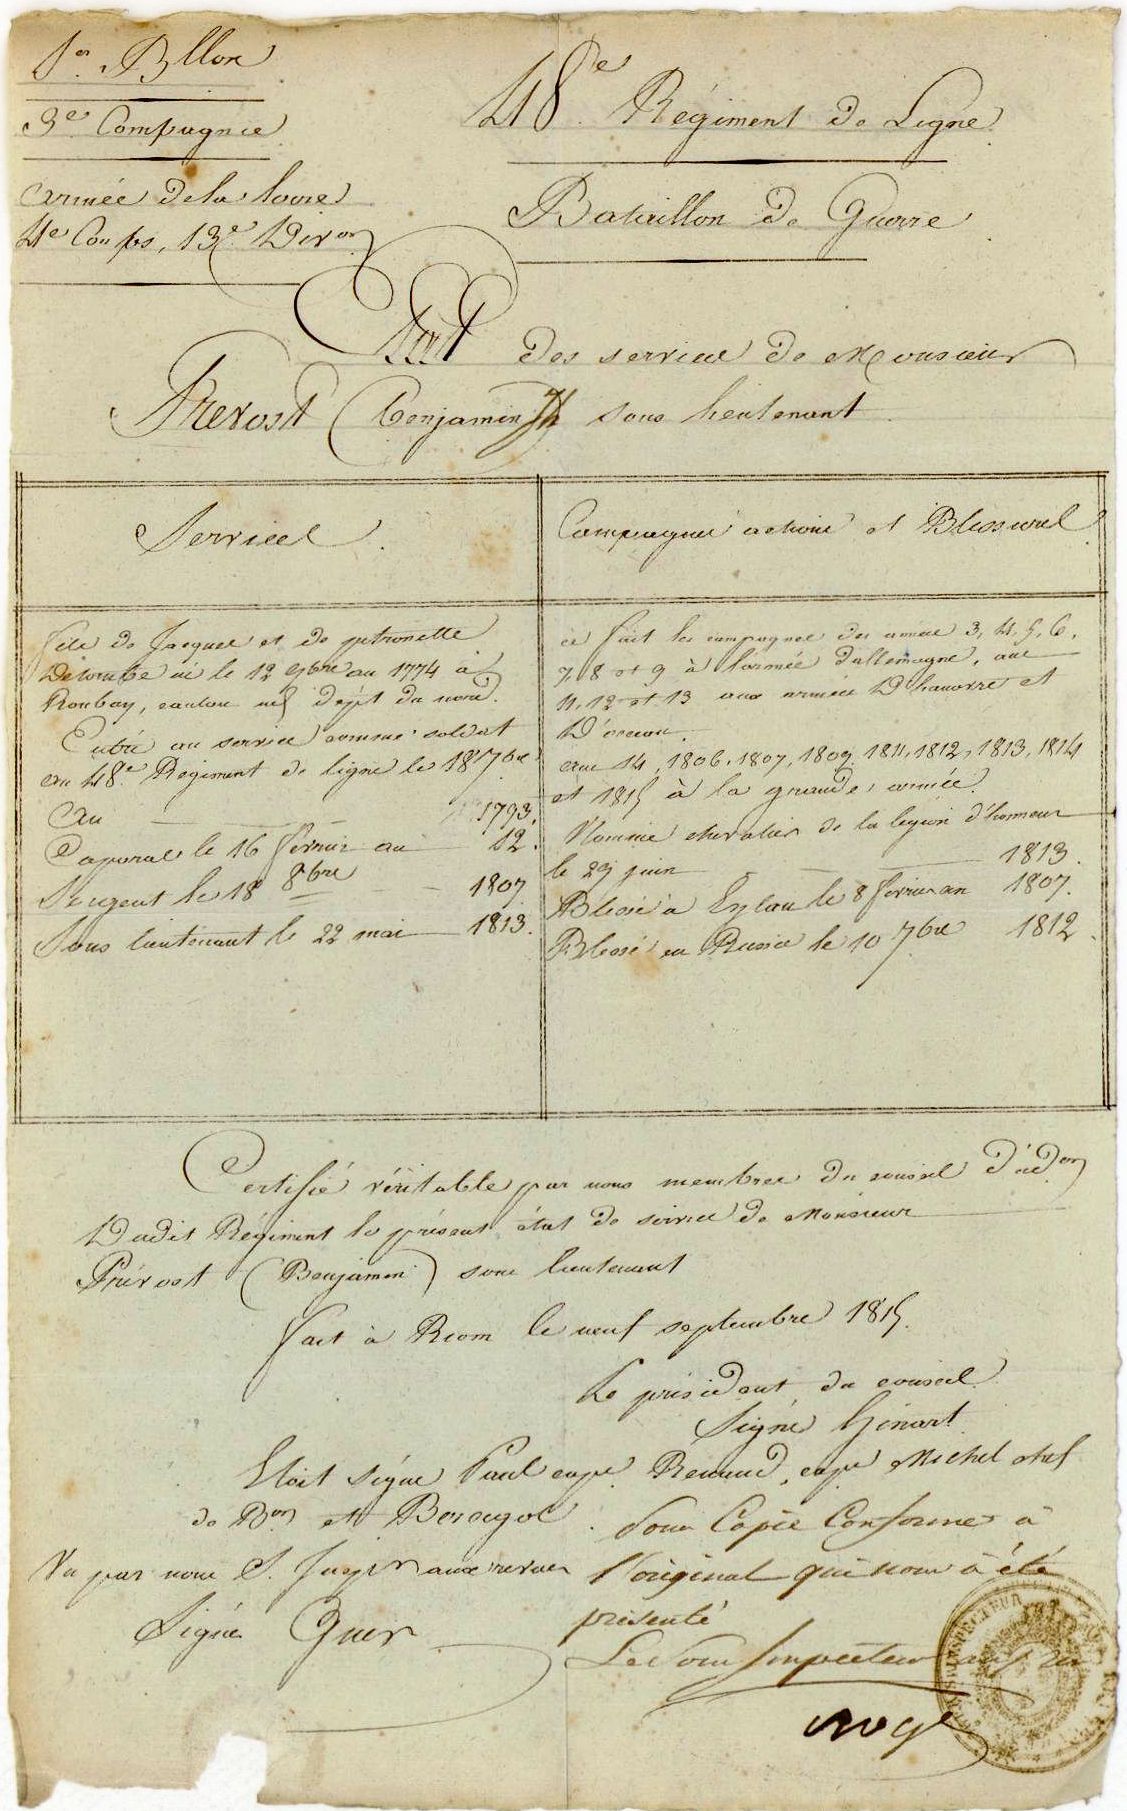 1er Bllon
3e Compagnie
armée de la Loire
4e Corps, 13e Divon
48e Régiment de Ligne
Bataillon de Guerre
État des services de Monsieur
Prevost (benjamin) sous lieutenant
Services.
Campagnes actions et Blessures
fils de Jacques et de petronelle
né le 12 9bre an 1774 à
Roubay, canton dept du nord.
Entré au service comme soldat
au 48e Regiment de ligne le 18 7bre
an 1793.
Caporal le 16 février an 12.
Sergent le 18 8bre 1807
Sous lieutenant le 22 mai 1813.
à fait les campagnes des années 3, 4, 5, 6,
7, 8 et 9 à l'armée d'allemagne, ans
11, 12 et 13 aux armées D'hanovre et
ans 14, 1806, 1807, 1809, 1811, 1812, 1813, 1814
et 1815 à la grande armée.
Nommé chevalier de la legion d'honneur
le 29 juin 1813.
Blessé à Eylau le 8 février an 1807.
Blessé en Russie le 10 7bre 1812.
Certifié véritable par nous membres du conseil d'adon
Dudit Régiment le présent état de service de Monsieur
Prévost (Benjamin) sous lieutenant
fait à Riom le neuf septembre 1815.
Le président du conseil
Signé
Etoit signé Paul cape. Renaud, cape Michel chef
de Bon et
Vu par nous S. Inspr aux revues
Signé
Pour Copie Conforme à
l'original qui nous a été
présenté
Le Sous Inspecteur